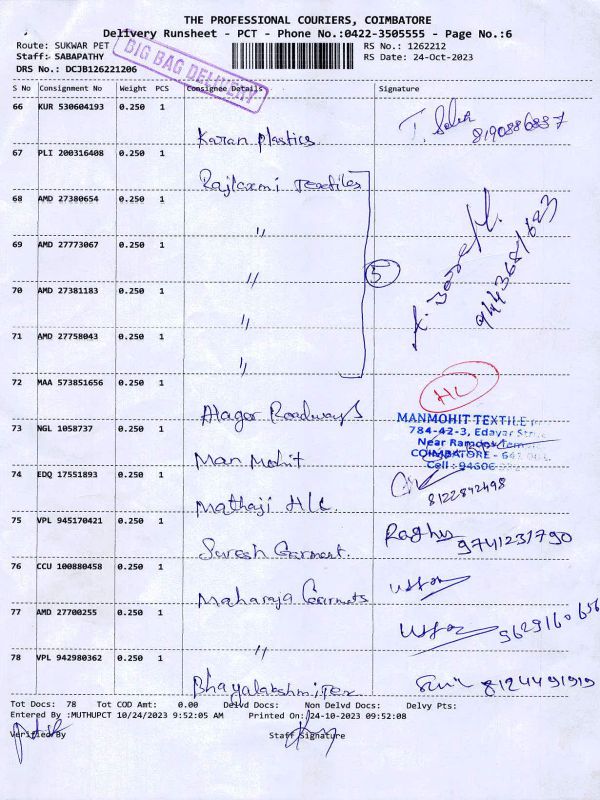 THE PROFESSIONAL COURIERS, COIMBATORE
Delivery Runsheet - PCT - Phone No.:0422-3505555 - Page No.:6
Route: SUKWAR PET
RS No.: 1262212
Staff: SABAPATHY
RS Date: 24-Oct-2023
DRS No.: DCJB126221206
BIG BAG DELIVERY
S No Consignment No Weight PCS Consignee Details Signature
66 KUR 530604193 0.250 1
Karan plastics
8190886887
67 PLI 200316408 0.250 1
Rajlaxmi Textiles
68 AMD 27380654 0.250 1
"
69 AMD 27773067 0.250 1
"
5
70 AMD 27381183 0.250 1
"
71 AMD 27758043 0.250 1
"
72 MAA 573851656 0.250 1
H/L
Alagar Roadways
MANMOHIT TEXTILE
784-42-3, Edayar
73 NGL 1058737 0.250 1
Near
Man Mohit
COIMBATORE -
Cell :
74 EDQ 17551893 0.250 1
Mathaji H/L
8122842498
75 VPL 945170421 0.250 1
Raghu 9741231790
Suresh Garment.
76 CCU 100880458 0.250 1
Maharaja Garments
77 AMD 27700255 0.250 1
"
78 VPL 942980362 0.250 1
Bhagalakshmi Tex
8124491919
Tot Docs: 78 Tot COD Amt: 0.00 Delvd Docs: Non Delvd Docs: Delvy Pts:
Entered By :MUTHUPCT 10/24/2023 9:52:05 AM Printed On: 24-10-2023 09:52:08
Verified By Staff Signature